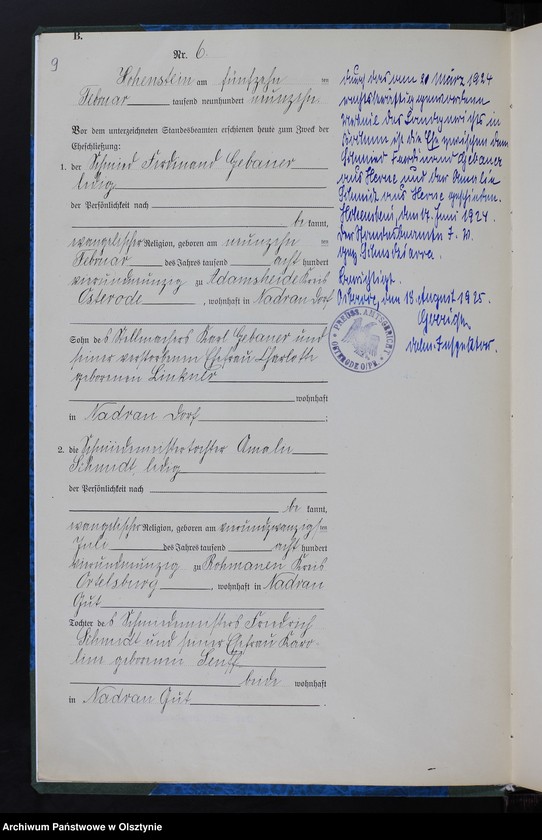 B.
9
Nr. 6.
Hohenstein am fünfzehn ten
Februar tausend neunhundert neunzehn.
Vor dem unterzeichneten Standesbeamten erschienen heute zum Zweck der
Eheschließung:
1. der Schmied Ferdinand Gebauer
ledig
der Persönlichkeit nach
be kannt,
evangelischer Religion, geboren am neunzehn ten
Februar des Jahres tausend acht hundert
vierundneunzig zu Adamsheide Kreis
Osterode, wohnhaft in Nadrau Dorf
Sohn des Stellmachers Karl Gebauer und
seiner verstorbenen Ehefrau Charlotte
geborenen
wohnhaft
in Nadrau Dorf;
2. die Schmiedemeistertochter Amalie
Schmidt, ledig
der Persönlichkeit nach
be kannt,
evangelischer Religion, geboren am vierundzwanzig ten
Juli des Jahres tausend acht hundert
vierundneunzig zu Rohmanen Kreis
Ortelsburg, wohnhaft in Nadrau
Gut
Tochter des Schmiedemeisters Friedrich
Schmidt und seiner Ehefrau Karo-
line geborenen Senff
beide wohnhaft
in Nadrau Gut.
durch das am 20 März 1924
rechtskräftig gewordene
Urteil des Landgerichts in
Bochum ist die Ehe zwischen dem
Schmied Ferdinand Gebauer
aus Herne und der Amalie
Schmidt aus Herne geschieden.
Hohenstein, den 17. Juni 1924.
Der Standesbeamte J. V.
gez.
Berichtigt.
Osterode, den 18. August 1925.
PREUSS. AMTSGERICHT
OSTERODE O/PR.
Archiwum Państwowe w Olsztynie